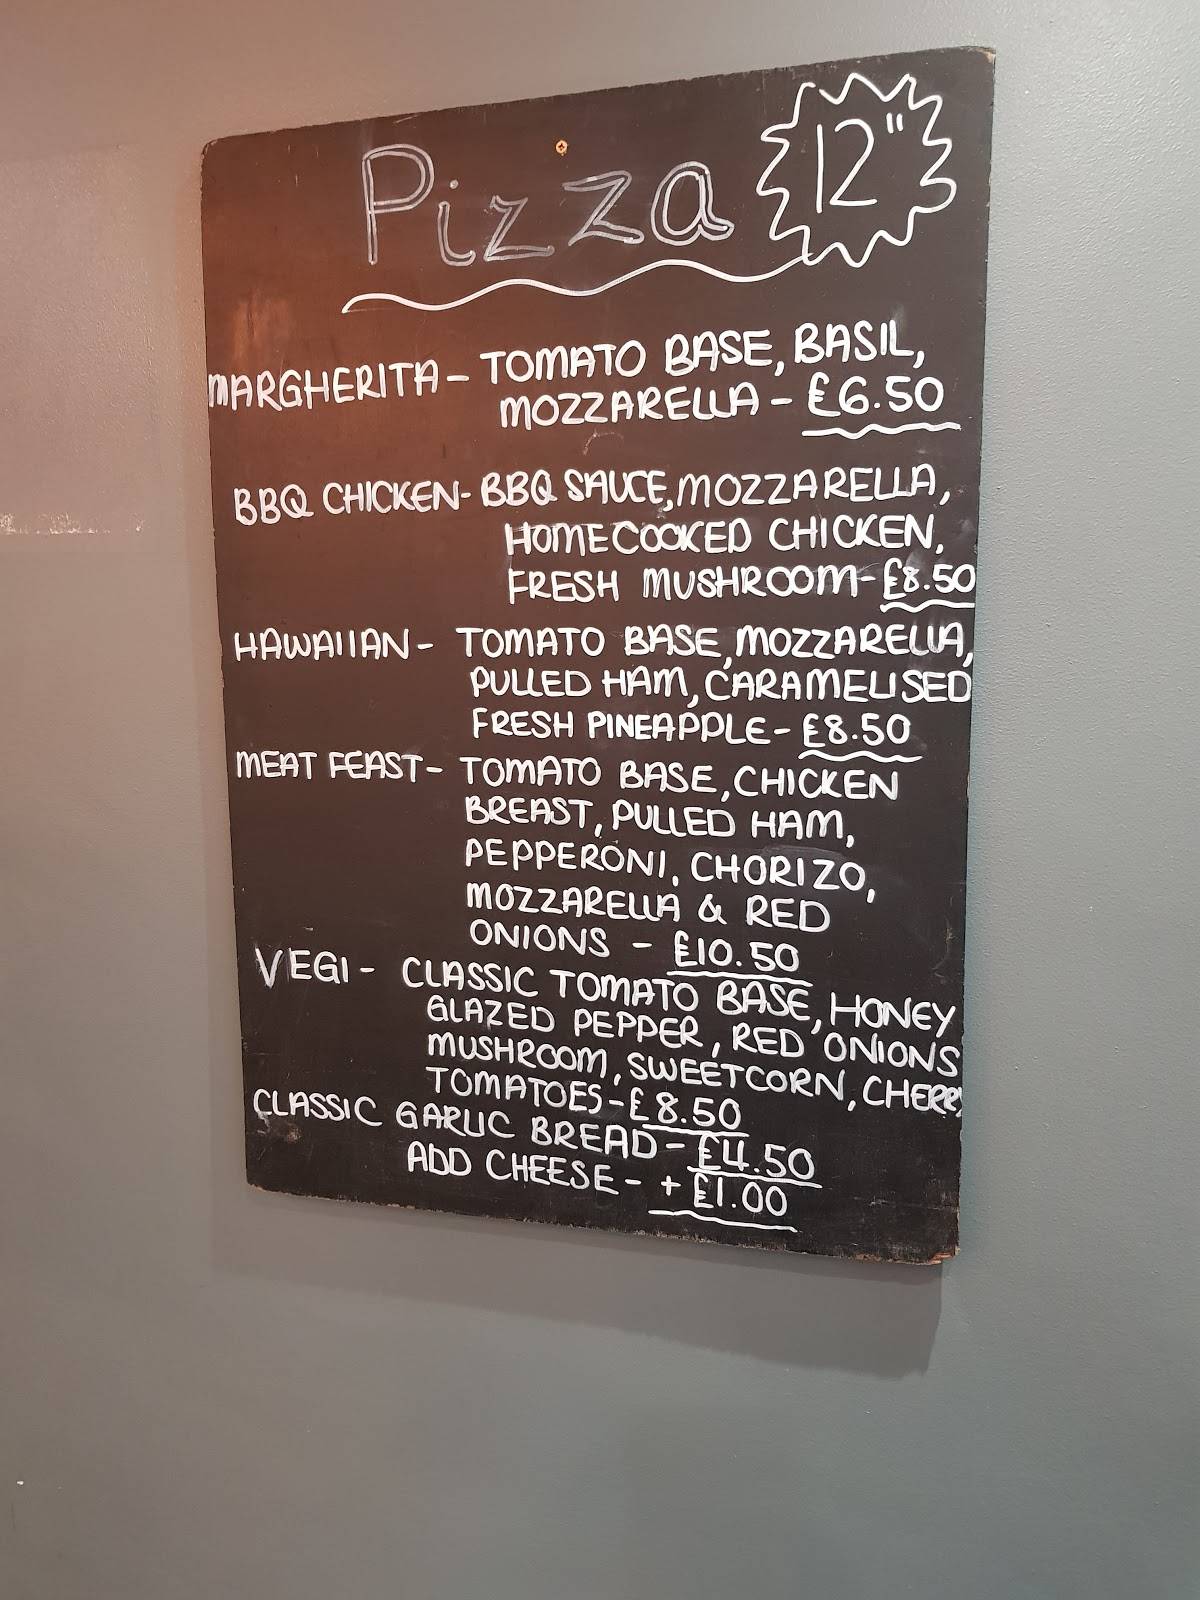 Pizza 12"
MARGHERITA - TOMATO BASE, BASIL,
MOZZARELLA - £6.50
BBQ CHICKEN - BBQ SAUCE, MOZZARELLA,
HOMECOOKED CHICKEN,
FRESH MUSHROOM - £8.50
HAWAIIAN - TOMATO BASE, MOZZARELLA,
PULLED HAM, CARAMELISED
FRESH PINEAPPLE - £8.50
MEAT FEAST - TOMATO BASE, CHICKEN
BREAST, PULLED HAM,
PEPPERONI, CHORIZO,
MOZZARELLA & RED
ONIONS - £10.50
VEGI - CLASSIC TOMATO BASE, HONEY
GLAZED PEPPER, RED ONIONS
MUSHROOM, SWEETCORN, CHERRY
TOMATOES - £8.50
CLASSIC GARLIC BREAD - £4.50
ADD CHEESE - + £1.00